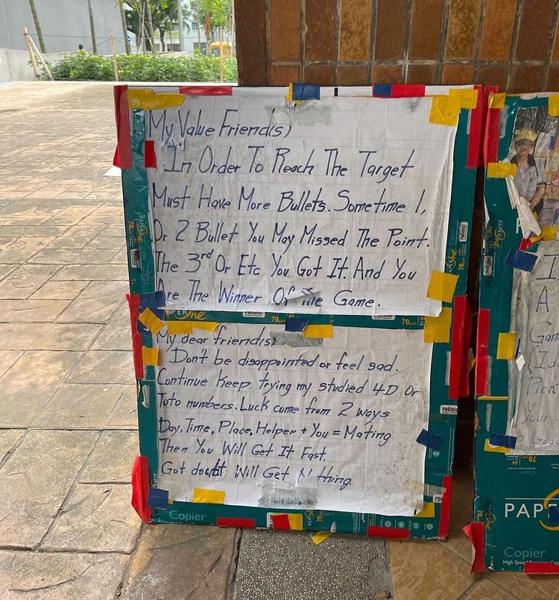 My Value Friend(s)
In Order To Reach The Target
Must Have More Bullets. Sometime 1,
Or 2 Bullet You May Missed The Point.
The 3rd Or Etc You Got It. And You
Are The Winner Of The Game.
One
70
My dear friend(s)
Don't be disappointed or feel sad.
Continue keep trying my studied 4D Or
Toto numbers. Luck come from 2 ways
Day, Time, Place, Helper + You = Mating
Then You Will Get It Fast.
Got doubt Will Get N thing.
Copier
PAPE
Copier